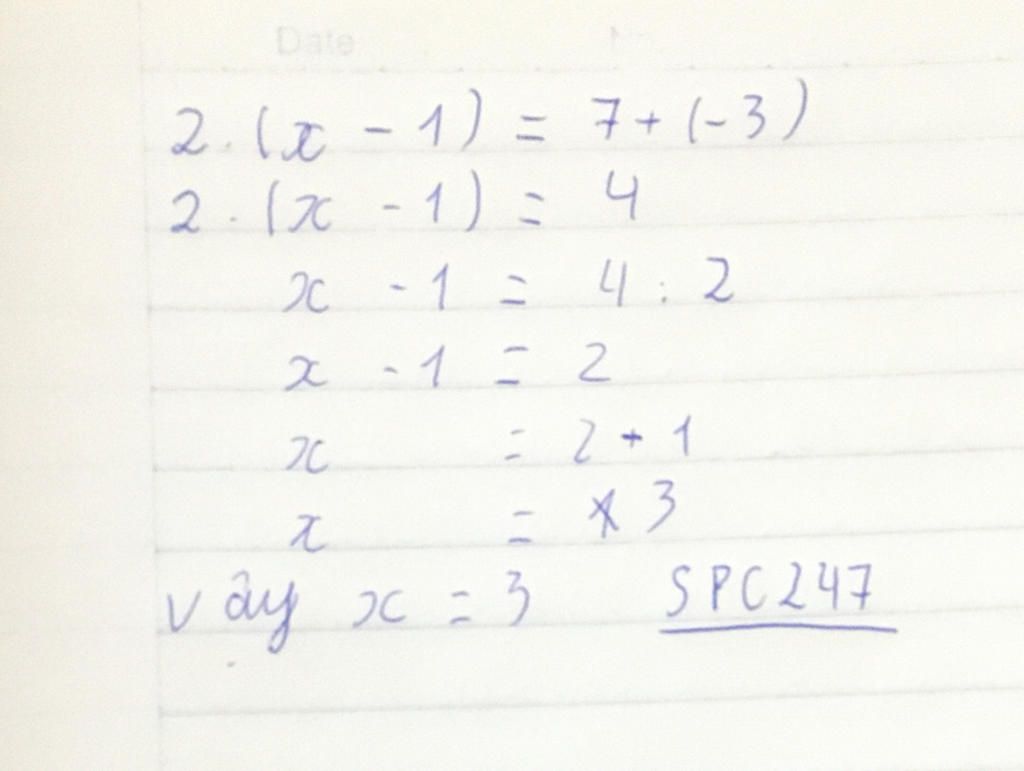 Date
2.(x - 1) = 7 + (-3)
2.(x - 1) = 4
x - 1 = 4 : 2
x - 1 = 2
x = 2 + 1
x = 3
vây x = 3 SPC247